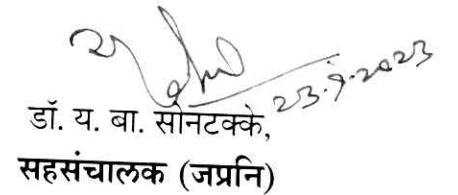 23.9.2023
डॉ. य. बा. सोनटक्के,
सहसंचालक (जप्रनि)